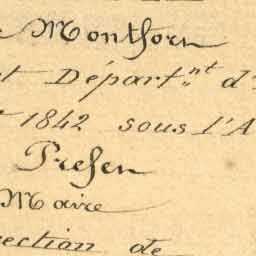 e Montforn
et Départ.nt d'
t 1842 sous l'A
Presen
Maire
rection de